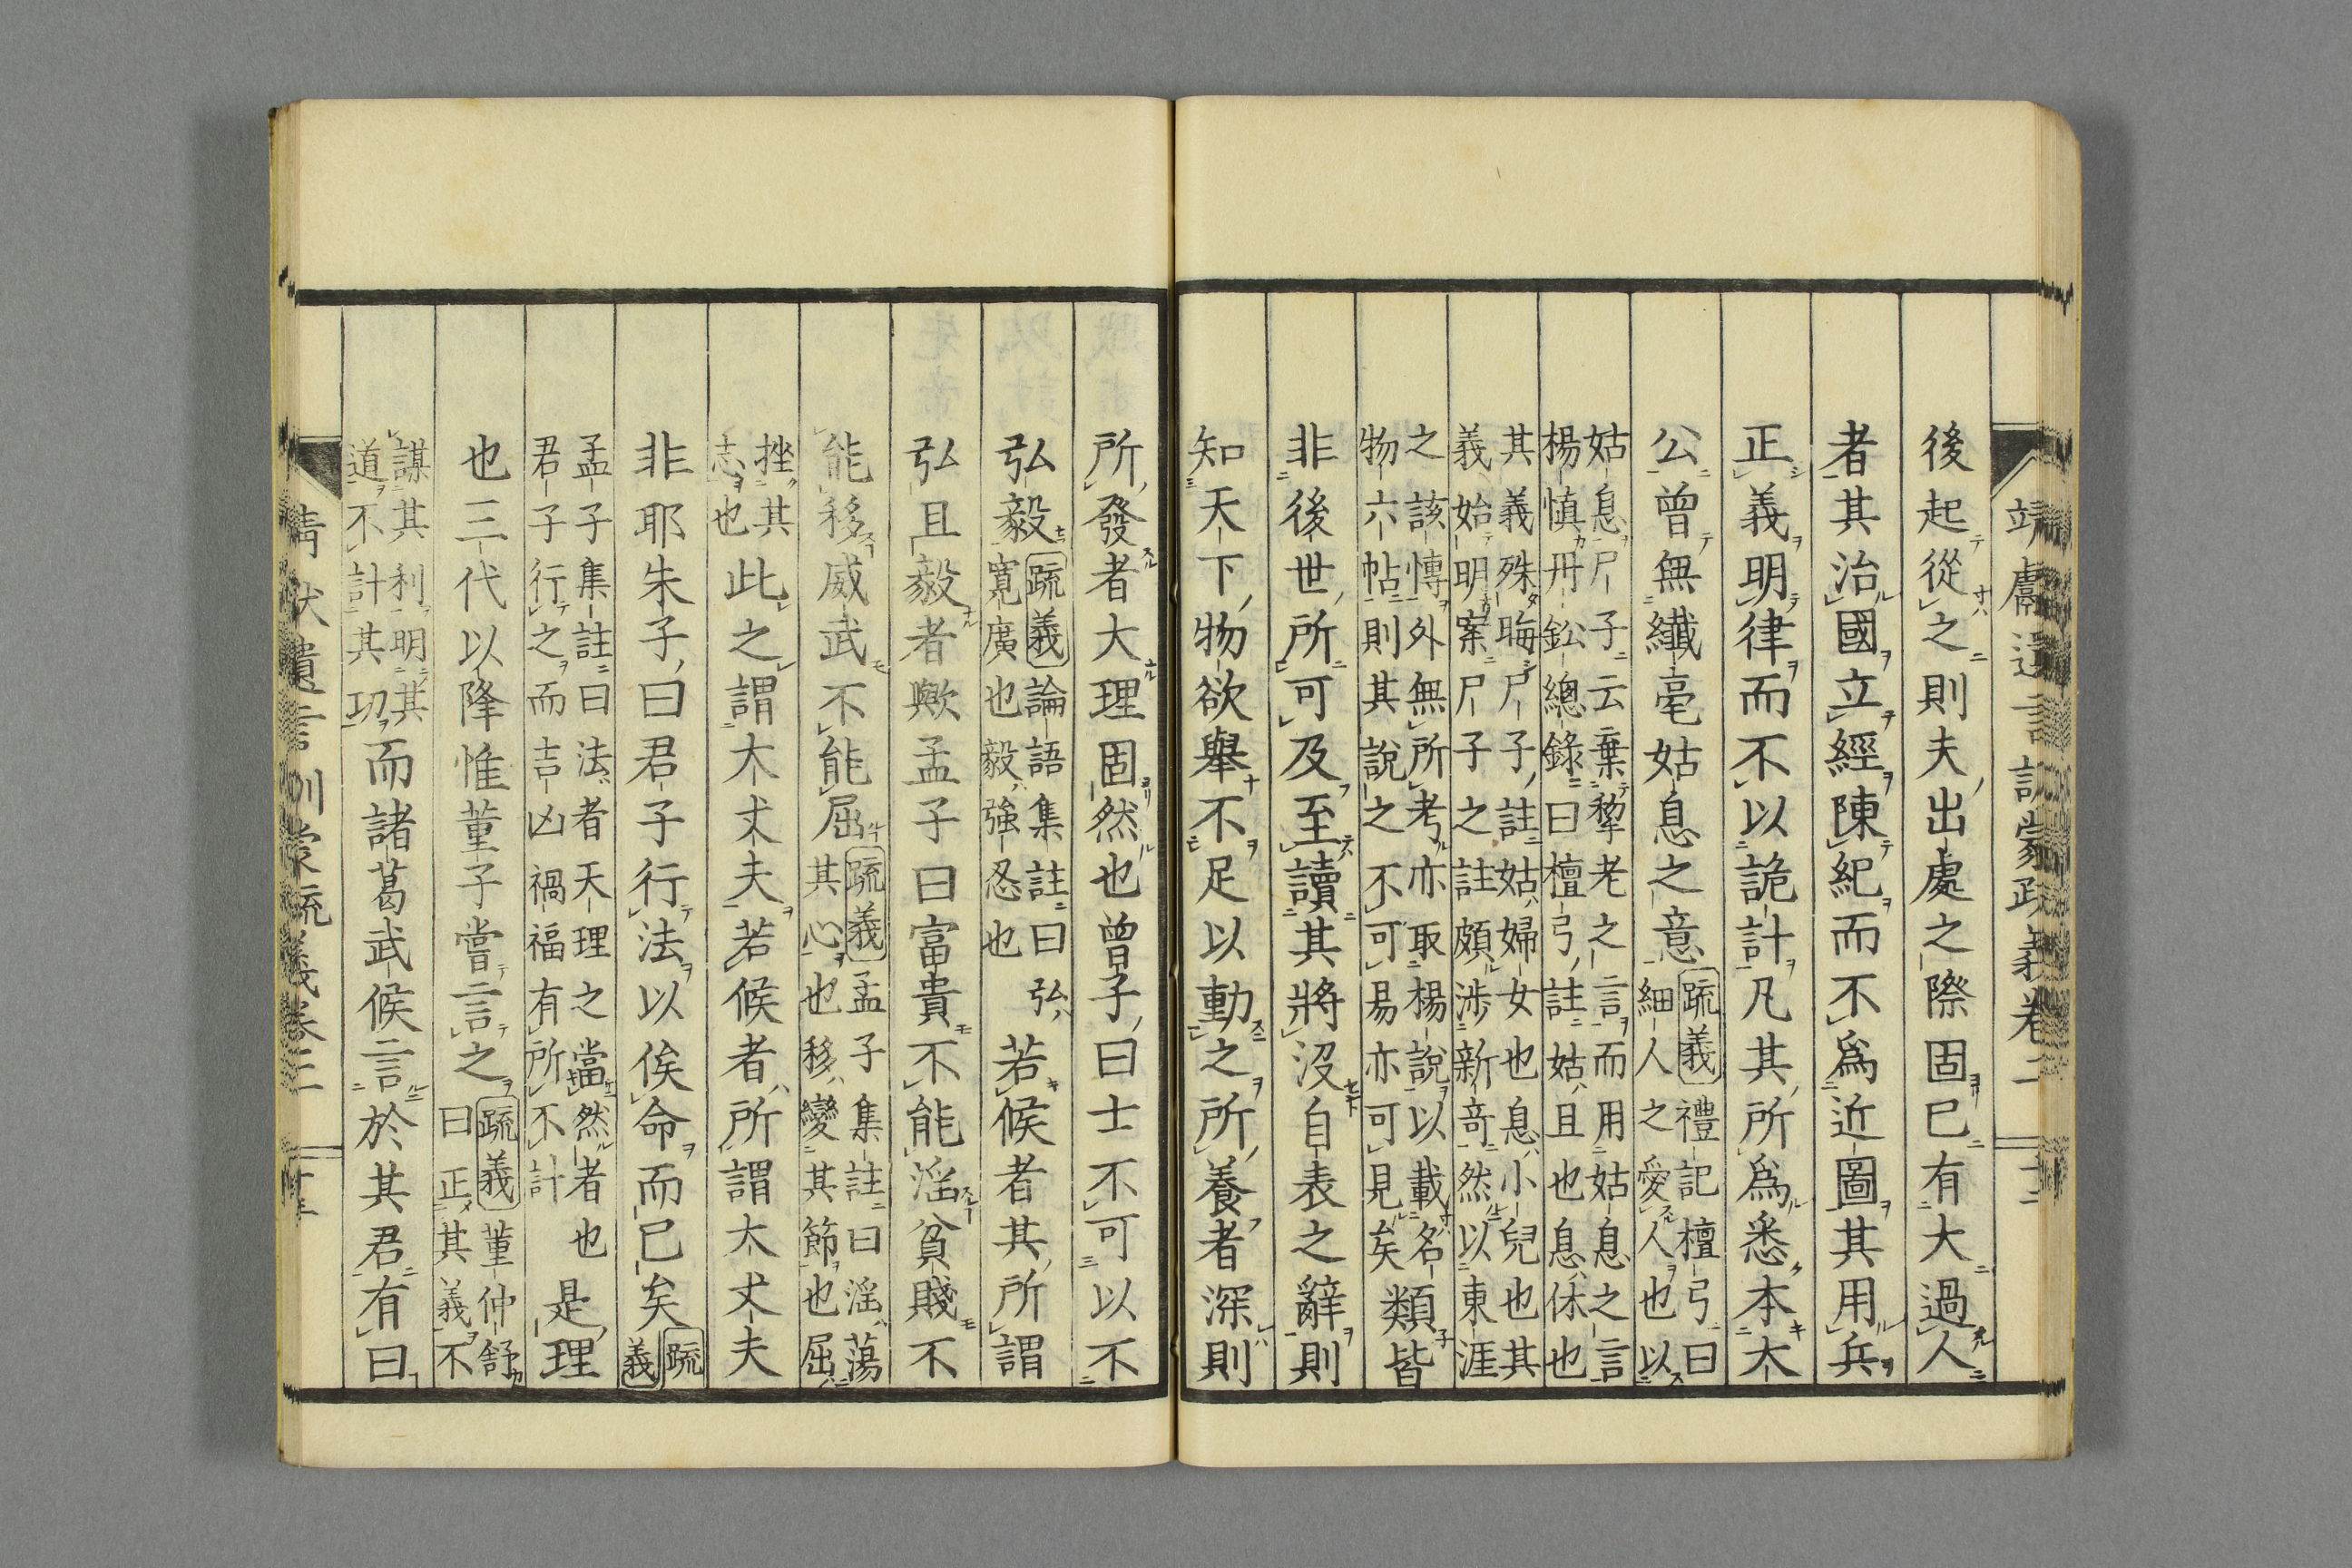 後起從之則夫出處之際固已有大過人
者其治國立經陳紀而不爲近圖其用兵
正義明律而不以詭計凡其所爲悉本大
公曾無纖毫姑息之意疏義禮記檀弓曰
細人之愛人也以
姑息尸子云棄犂老之言而用姑息之言
楊愼丹鉛總錄曰檀弓註姑且也息休也
其義殊晦尸子註姑婦女也息小兒也其
義始明案尸子之註頗涉新竒然以東涯
之該愽外無所考亦取楊說以載名
物六帖則其說之不可易亦可見矣
類皆
非後世所可及至讀其將沒自表之辭則
知天下物欲舉不足以動之所養者深則
所發者大理固然也曾子曰士不可以不
弘毅疏義論語集註曰弘
寬廣也毅強忍也
若候者其所謂
弘且毅者歟孟子曰富貴不能滛貧賤不
能移威武不能屈疏義孟子集註曰滛蕩
其心也移變其節也屈
挫其
志也
此之謂大丈夫若候者所謂大丈夫
非耶朱子曰君子行法以俟命而已矣疏
義
孟子集註曰法者天理之當然者也
君子行之而吉凶禍福有所不計
是理
也三代以降惟董子嘗言之疏義董仲舒
曰正其義不
謀其利明其
道不計其功
而諸葛武候言於其君有曰
靖獻遺言訓蒙疏義卷二